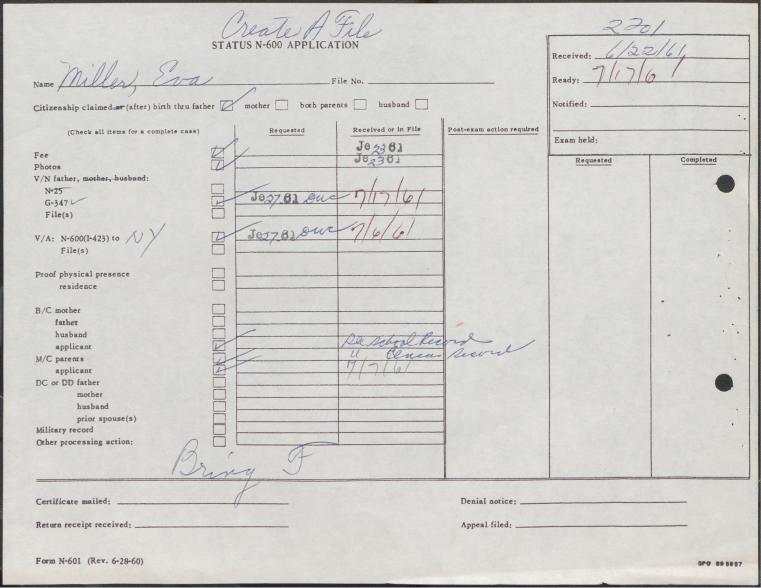 Create A File
STATUS N-600 APPLICATION
2201
Received: 6/22/61
Ready: 7/17/61
Notified:
Exam held:
Name Miller, Eva File No.
Citizenship claimed or (after) birth thru father mother both parents husband
(Check all items for a complete case) Requested Received or in File Post-exam action required Requested Completed
Fee Je 23 61
Photos Je 23 61
V/N father, mother, husband:
N-25
G-347 Je 27 61 7/17/61
File(s)
V/A: N-600(I-423) to NY Je 27 61 7/6/61
File(s)
Proof physical presence
residence
B/C mother
father
husband
applicant School Record
M/C parents " Census Record
applicant 7/7/61
DC or DD father
mother
husband
prior spouse(s)
Military record
Other processing action:
Bring F
Certificate mailed: Denial notice:
Return receipt received: Appeal filed:
Form N-601 (Rev. 6-28-60)